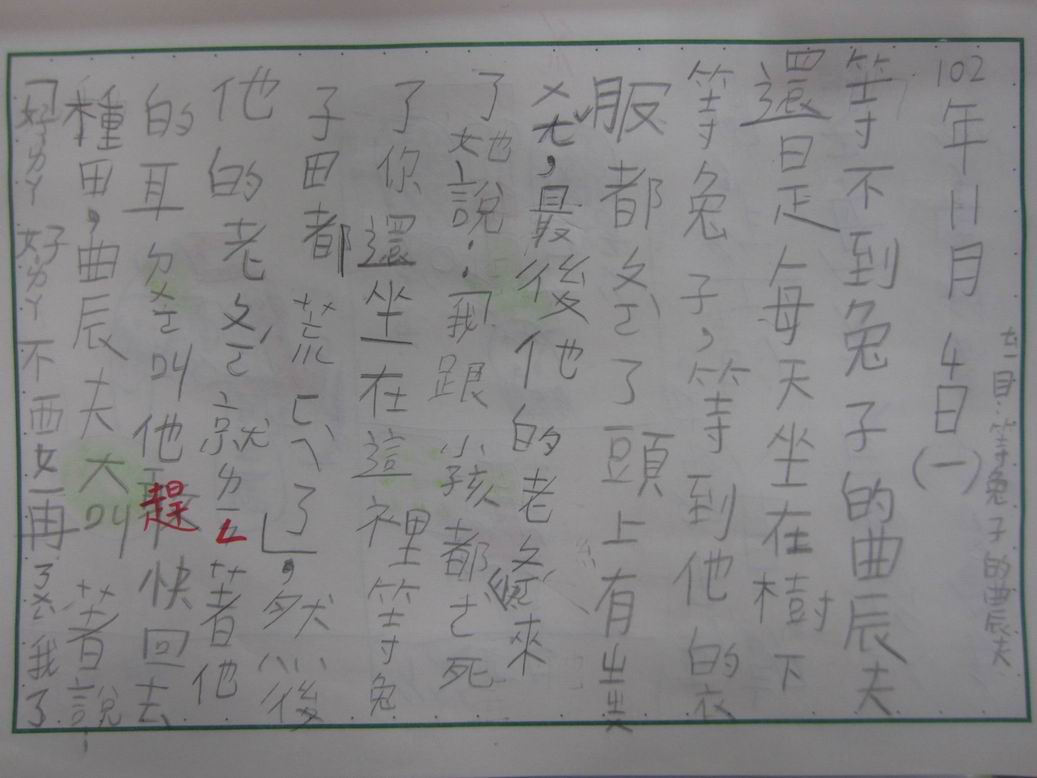 目:等兔子的農夫
102年11月4日(一)
等不到兔子的農夫
還是每天坐在樹下
等兔子,等到他的衣
服都ㄆㄛˋ了頭上有
,最後他的老ㄆㄛˊ來
了她說:「我跟小孩都ㄜˋ死
了你還坐在這裡等兔
子田都荒ㄈㄟˋ了」,然後
他的老ㄆㄛˊ就ㄌㄚ著他
的耳ㄉㄨㄛ叫他趕快回去
種田,農夫大叫著說:
「好ㄌㄚ好ㄌㄚ不要再我了